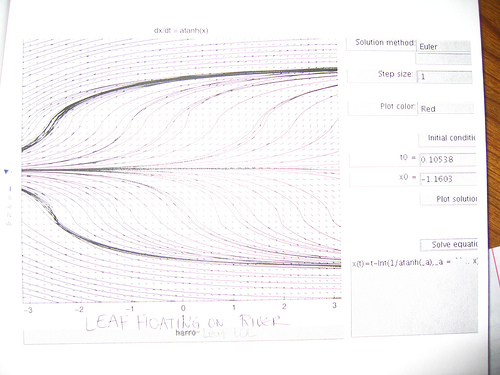 dx/dt = atanh(x)
Solution method: Euler
Step size: 1
Plot color: Red
Initial conditi
t0 = 0.10538
x0 = -1.1603
Plot solutio
Solve equatic
x(t)=t-Int(1/atanh(_a),_a = `` .. x(
-3 -2 -1 0 1 2 3
LEAF FLOATING ON RIVER
harro